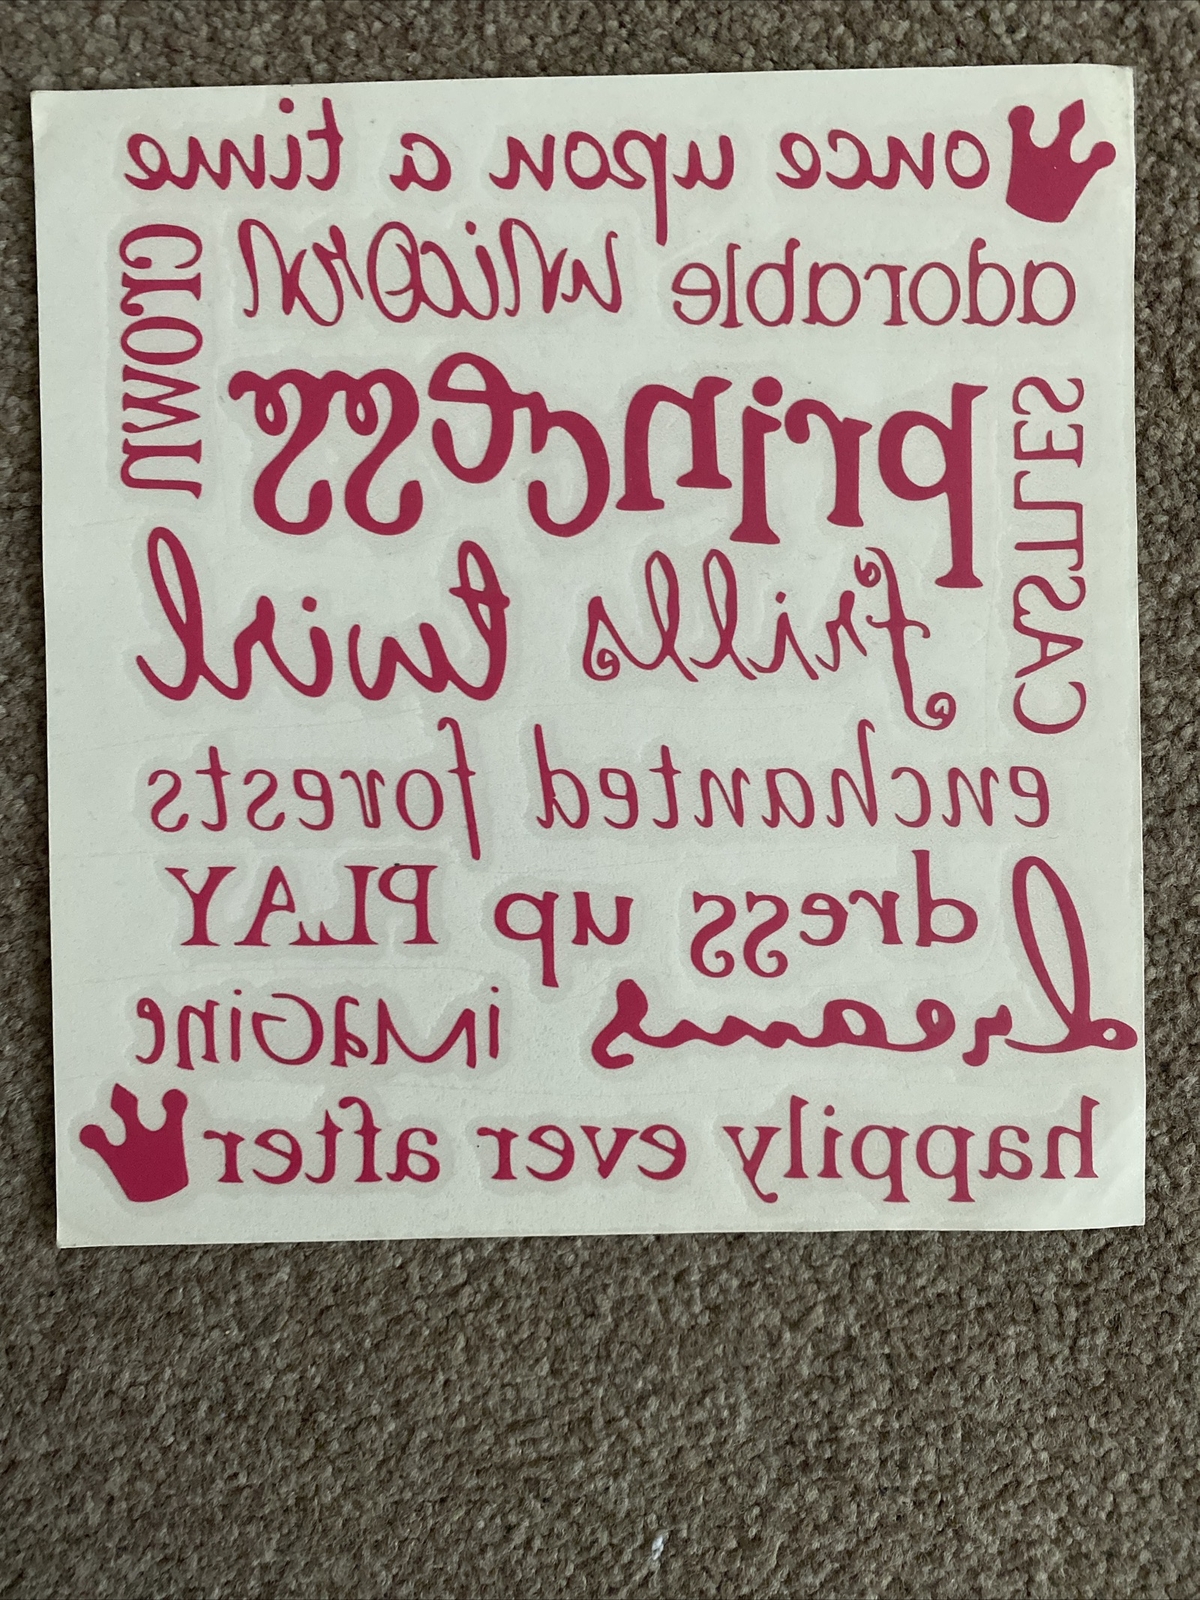 once upon a time
adorable unicorn
crown
CASTLES
princess
frills twirl
enchanted forests
dress up PLAY
dreams iMAGine
happily ever after